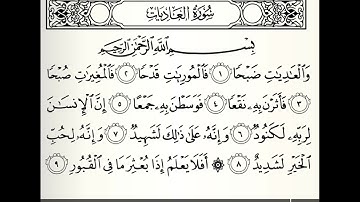 سُورَةُ العَادِيَاتِ
بِسْمِ ٱللَّهِ ٱلرَّحْمَٰنِ ٱلرَّحِيمِ
وَٱلْعَٰدِيَٰتِ ضَبْحًا ١ فَٱلْمُورِيَٰتِ قَدْحًا ٢ فَٱلْمُغِيرَٰتِ صُبْحًا
٣ فَأَثَرْنَ بِهِۦ نَقْعًا ٤ فَوَسَطْنَ بِهِۦ جَمْعًا ٥ إِنَّ ٱلْإِنسَٰنَ
لِرَبِّهِۦ لَكَنُودٌ ٦ وَإِنَّهُۥ عَلَىٰ ذَٰلِكَ لَشَهِيدٌ ٧ وَإِنَّهُۥ لِحُبِّ
ٱلْخَيْرِ لَشَدِيدٌ ٨ ۞ أَفَلَا يَعْلَمُ إِذَا بُعْثِرَ مَا فِى ٱلْقُبُورِ ٩